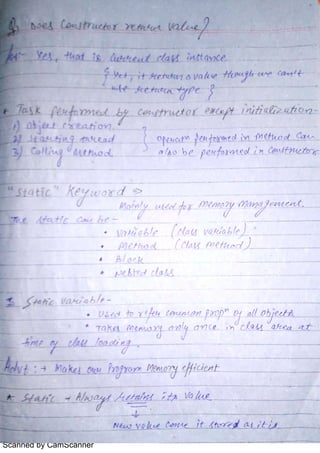 Q. Does Constructor return value?
Ans- Yes, that is current class instance
{ Yet, it return a value though we can't
use return type }
* Task performed by constructor except initialization-
1) object creation
2) starting thread
3) Calling method
} operation performed in method can
also be performed in constructor
"Static" Keyword =>
Mainly used for memory management.
The static can be -
• Variable (class variable)
• Method (class method)
• Block
• Nested class
1. Static Variable -
• Used to refer common propⁿ of all objects
• Takes memory only once in class area at
time of class loading.
Advt: → Makes our Program memory efficient
* Static → Always retains its value
↓
New value come it stored as it is
Scanned by CamScanner